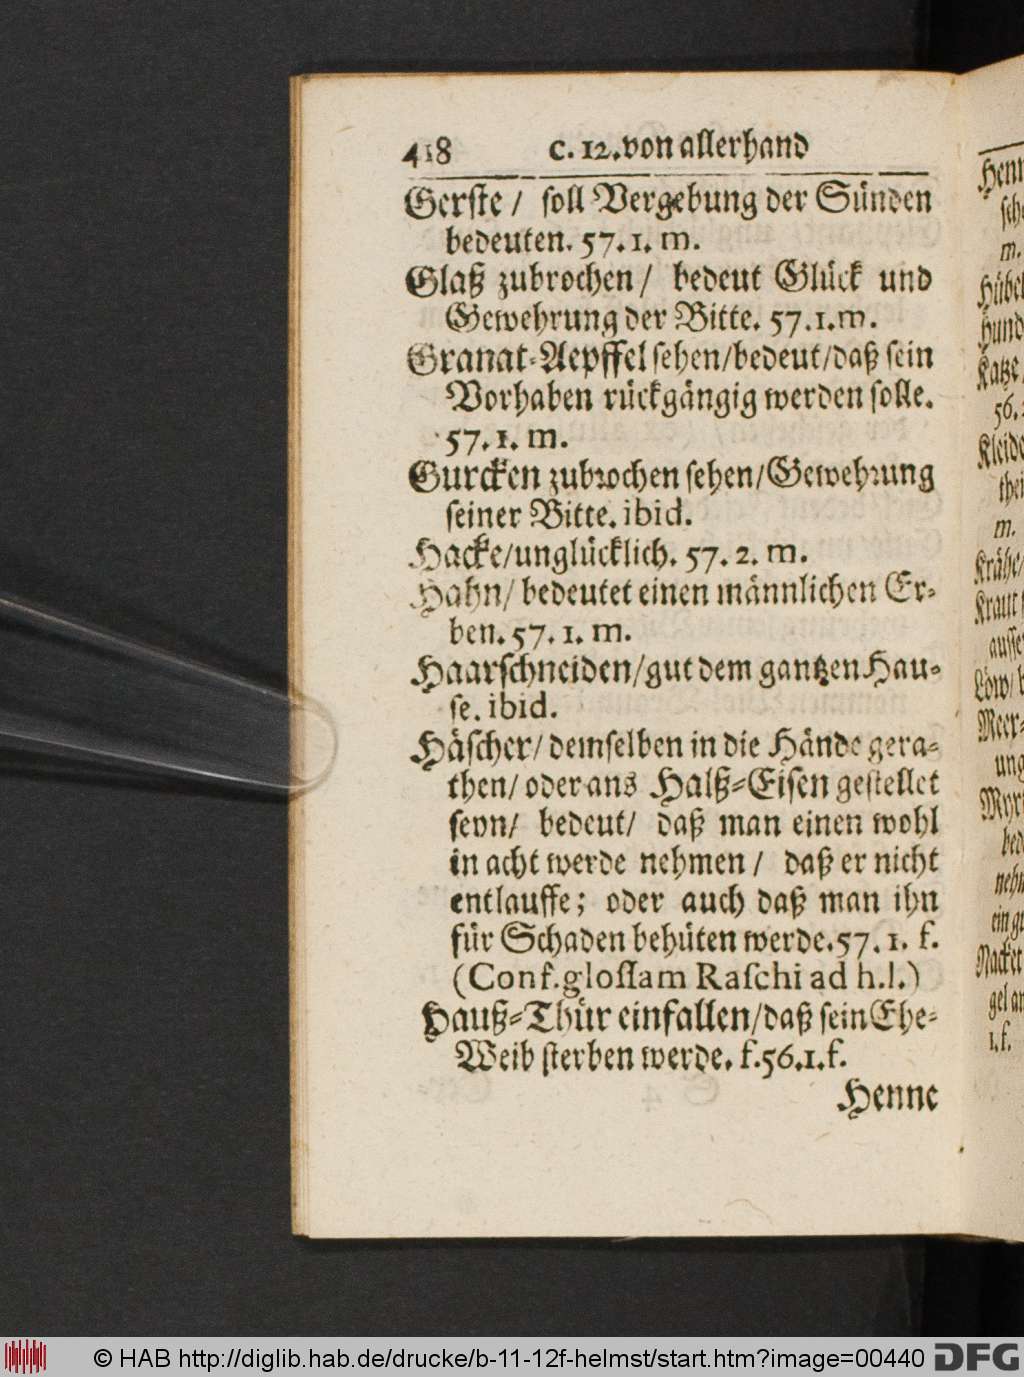 418 c. 12. von allerhand
Gerste / soll Vergebung der Sünden
bedeuten. 57. 1. m.
Glaß zubrochen / bedeut Glück und
Gewehrung der Bitte. 57. 1. m.
Granat-Aepffel sehen/bedeut/daß sein
Vorhaben rückgängig werden solle.
57. 1. m.
Gurcken zubrochen sehen/Gewehrung
seiner Bitte. ibid.
Hacke/unglücklich. 57. 2. m.
Hahn/ bedeutet einen männlichen Er-
ben. 57. 1. m.
Haarschneiden/gut dem gantzen Hau-
se. ibid.
Häscher/ demselben in die Hände gera-
then/ oder ans Halß-Eisen gestellet
seyn/ bedeut/ daß man einen wohl
in acht werde nehmen / daß er nicht
entlauffe; oder auch daß man ihn
für Schaden behüten werde. 57. 1. f.
(Conf. glossam Raschi ad h.l.)
Hauß-Thür einfallen/daß sein Ehe-
Weib sterben werde. f. 56. 1. f.
Henne
Hübel
Hund
Katze
56.
Kleide
m.
Krähe/
Kraut
Löw/
Meer-
ung
nehm
Nacket
gel an
1. f.
© HAB http://diglib.hab.de/drucke/b-11-12f-helmst/start.htm?image=00440 DFG